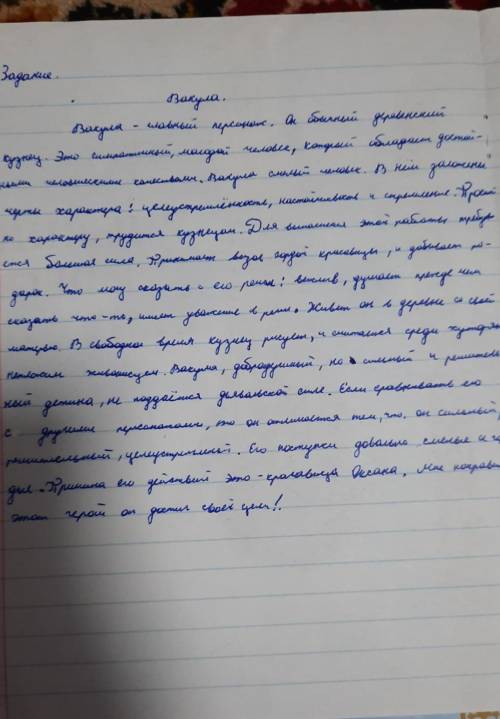 Задание.
Вакула.
Вакула - главный персонаж. Он обычный деревенский
кузнец. Это симпатичный, молодой человек, который обладает достой-
ными человеческими качествами. Вакула смелый человек. В нём заложены
черты характера: целеустремлённость, настойчивость и стремление. Прост
по характеру, трудится кузнецом. Для выполнения этой работы требу-
ется большая сила. Принимает вызов гордой красавицы, и добывает по-
дарок. Что могу сказать о его речи: вежлив, думает прежде чем
сказать что-то, имеет уважение в речи. Живёт он в деревне со своей
матерью. В свободное время кузнец рисует, и считается среди хуторян
неплохим живописцем. Вакула, добродушный, но сильный и решитель-
ный детина, не поддаётся дьявольской силе. Если сравнивать его
с другими персонажами, то он отличается тем, что он сильный,
решительный, целеустремлённый. Его поступки довольно смелые и го
рдые. Причина его действий это - красавица Оксана. Мне понравился
этот герой он достиг своей цели!.